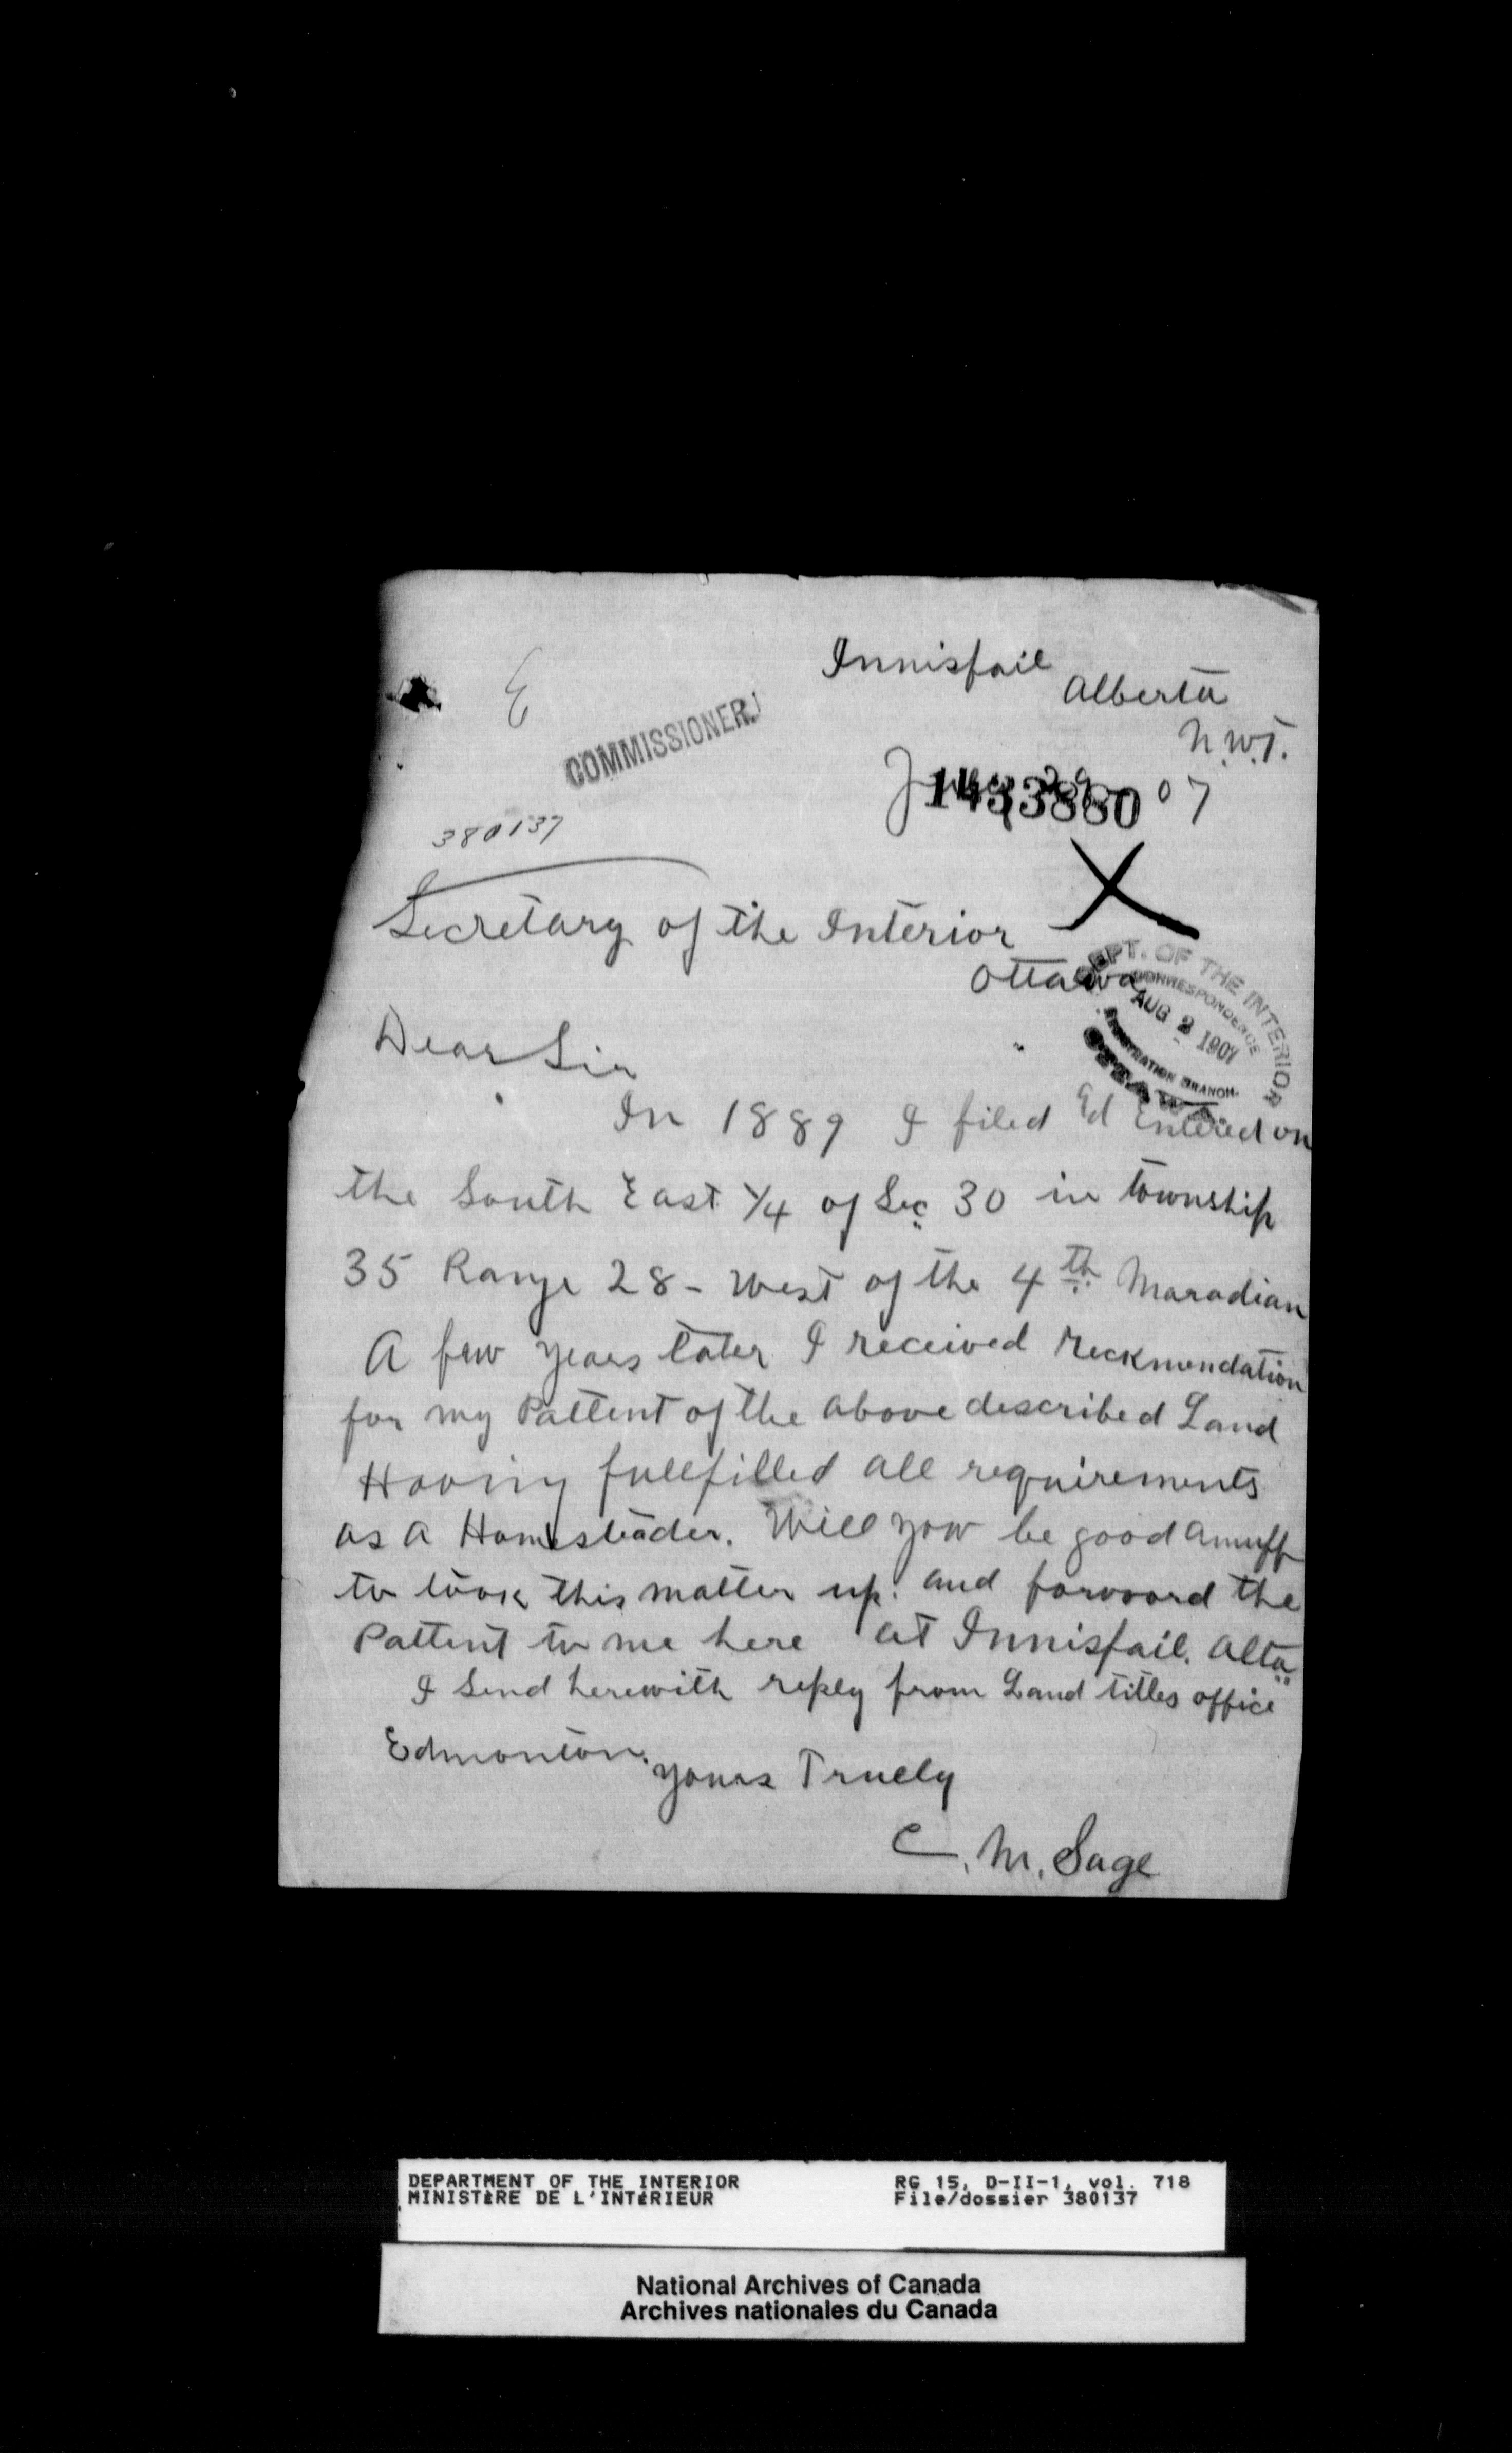 Innisfail
Alberta
N.W.T.
E
COMMISSIONER.
1433880 07
380137
Secretary of the Interior
Ottawa
DEPT. OF THE INTERIOR
CORRESPONDENCE
AUG 2 1907
REGISTRATION BRANCH
OTTAWA
Dear Sir
In 1889 I filed & Entered on
the South East 1/4 of Sec 30 in township
35 Range 28 - West of the 4th Maradian
A few years later I received Reckmendation
for my Pattent of the above described Land
Having fullfilled all requirements
as a Homesteader. Will you be good anuff
to look this matter up. and forward the
Pattent to me here at Innisfail. Alta
I Send herewith reply from Land titles office
Edmonton.
yours Truely
C. M. Sage
DEPARTMENT OF THE INTERIOR RG 15, D-II-1, vol. 718
MINISTÈRE DE L'INTÉRIEUR File/dossier 380137
National Archives of Canada
Archives nationales du Canada